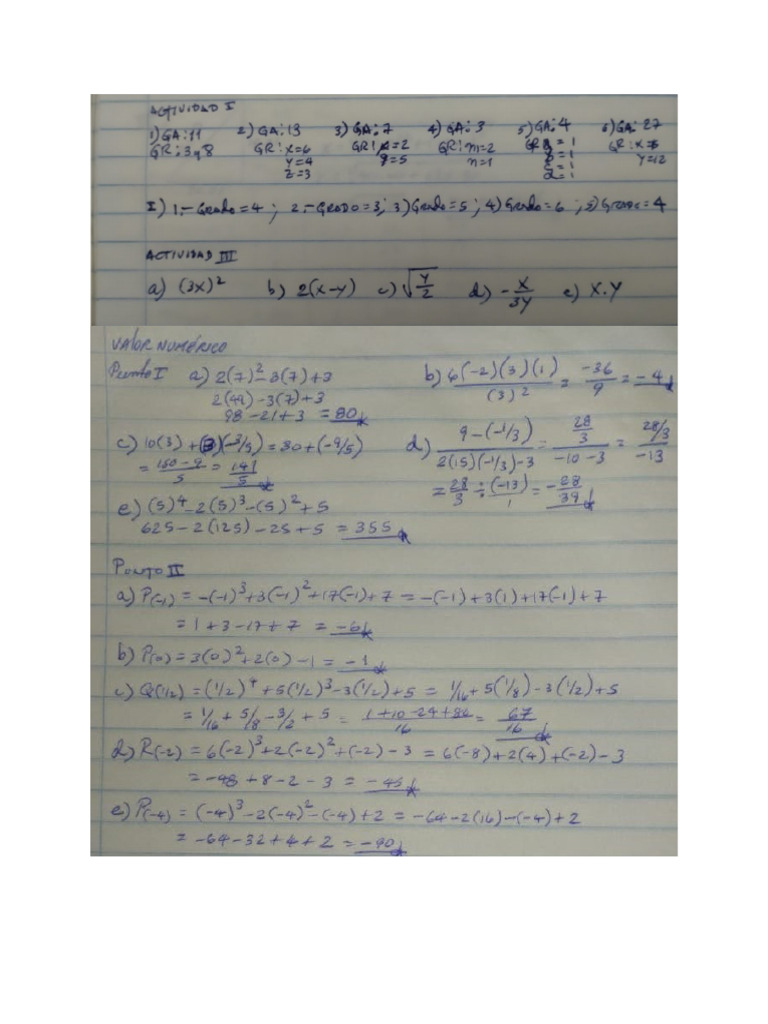 ACTIVIDAD I
1) GA: 11 2) GA: 13 3) GA: 7 4) GA: 3 5) GA: 4 6) GA: 27
GR: 3 y 8 GR: x=6 GR: x=2 GR: m=2 = 1 GR: x=
y=4 y=5 n=1 b = 1 y=12
z=3 c = 1
d = 1
I) 1.- Grado = 4 ; 2.- GRADO = 3 ; 3) Grado = 5 ; 4) Grado = 6 ; 5) Grado = 4
ACTIVIDAD III
a) (3x)² b) 2(x-y) c) √(y/2) d) - x/3y e) x.y
VALOR NUMÉRICO
Punto I a) 2(7)²-3(7)+3 b) 6(-2)(3)(1)/(3)² = -36/9 = -4
2(49)-3(7)+3
98-21+3 = 80
c) 10(3) + (3)(-3/5) = 30+(-9/5) d) 9-(-1/3)/2(15)(-1/3)-3 = 28/3/-10-3 = 28/3/-13
= 150-9/5 = 141/5 = 28/3 ÷ (-13)/1 = -28/39
e) (5)⁴-2(5)³-(5)²+5
625-2(125)-25+5 = 355
Punto II
a) P(-1) = -(-1)³+3(-1)²+17(-1)+7 = -(-1)+3(1)+17(-1)+7
= 1+3-17+7 = -6
b) P(0) = 3(0)²+2(0)-1 = -1
c) Q(1/2) = (1/2)⁴+5(1/2)³-3(1/2)+5 = 1/16+5(1/8)-3(1/2)+5
= 1/16+5/8-3/2+5 = 1+10-24+80/16 = 67/16
d) R(-2) = 6(-2)³+2(-2)²+(-2)-3 = 6(-8)+2(4)+(-2)-3
= -48+8-2-3 = -45
e) P(-4) = (-4)³-2(-4)²-(-4)+2 = -64-2(16)-(-4)+2
= -64-32+4+2 = -90